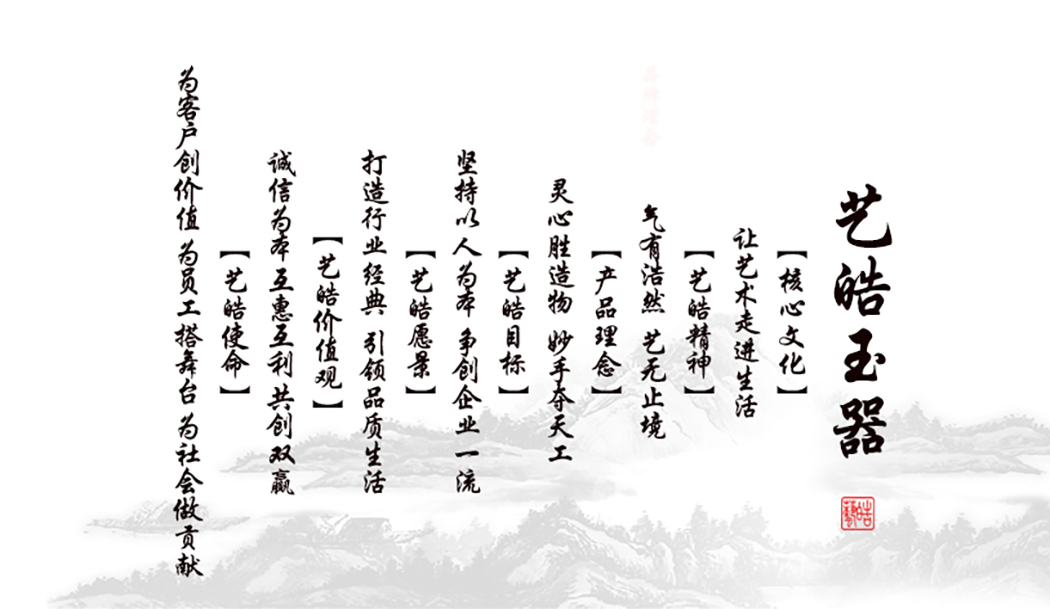 艺皓玉器
皓藝
【核心文化】
让艺术走进生活
【艺皓精神】
气有浩然 艺无止境
【产品理念】
灵心胜造物 妙手夺天工
【艺皓目标】
坚持以人为本 争创企业一流
【艺皓愿景】
打造行业经典 引领品质生活
【艺皓价值观】
诚信为本 互惠互利 共创双赢
【艺皓使命】
为客户创价值 为员工搭舞台 为社会做贡献